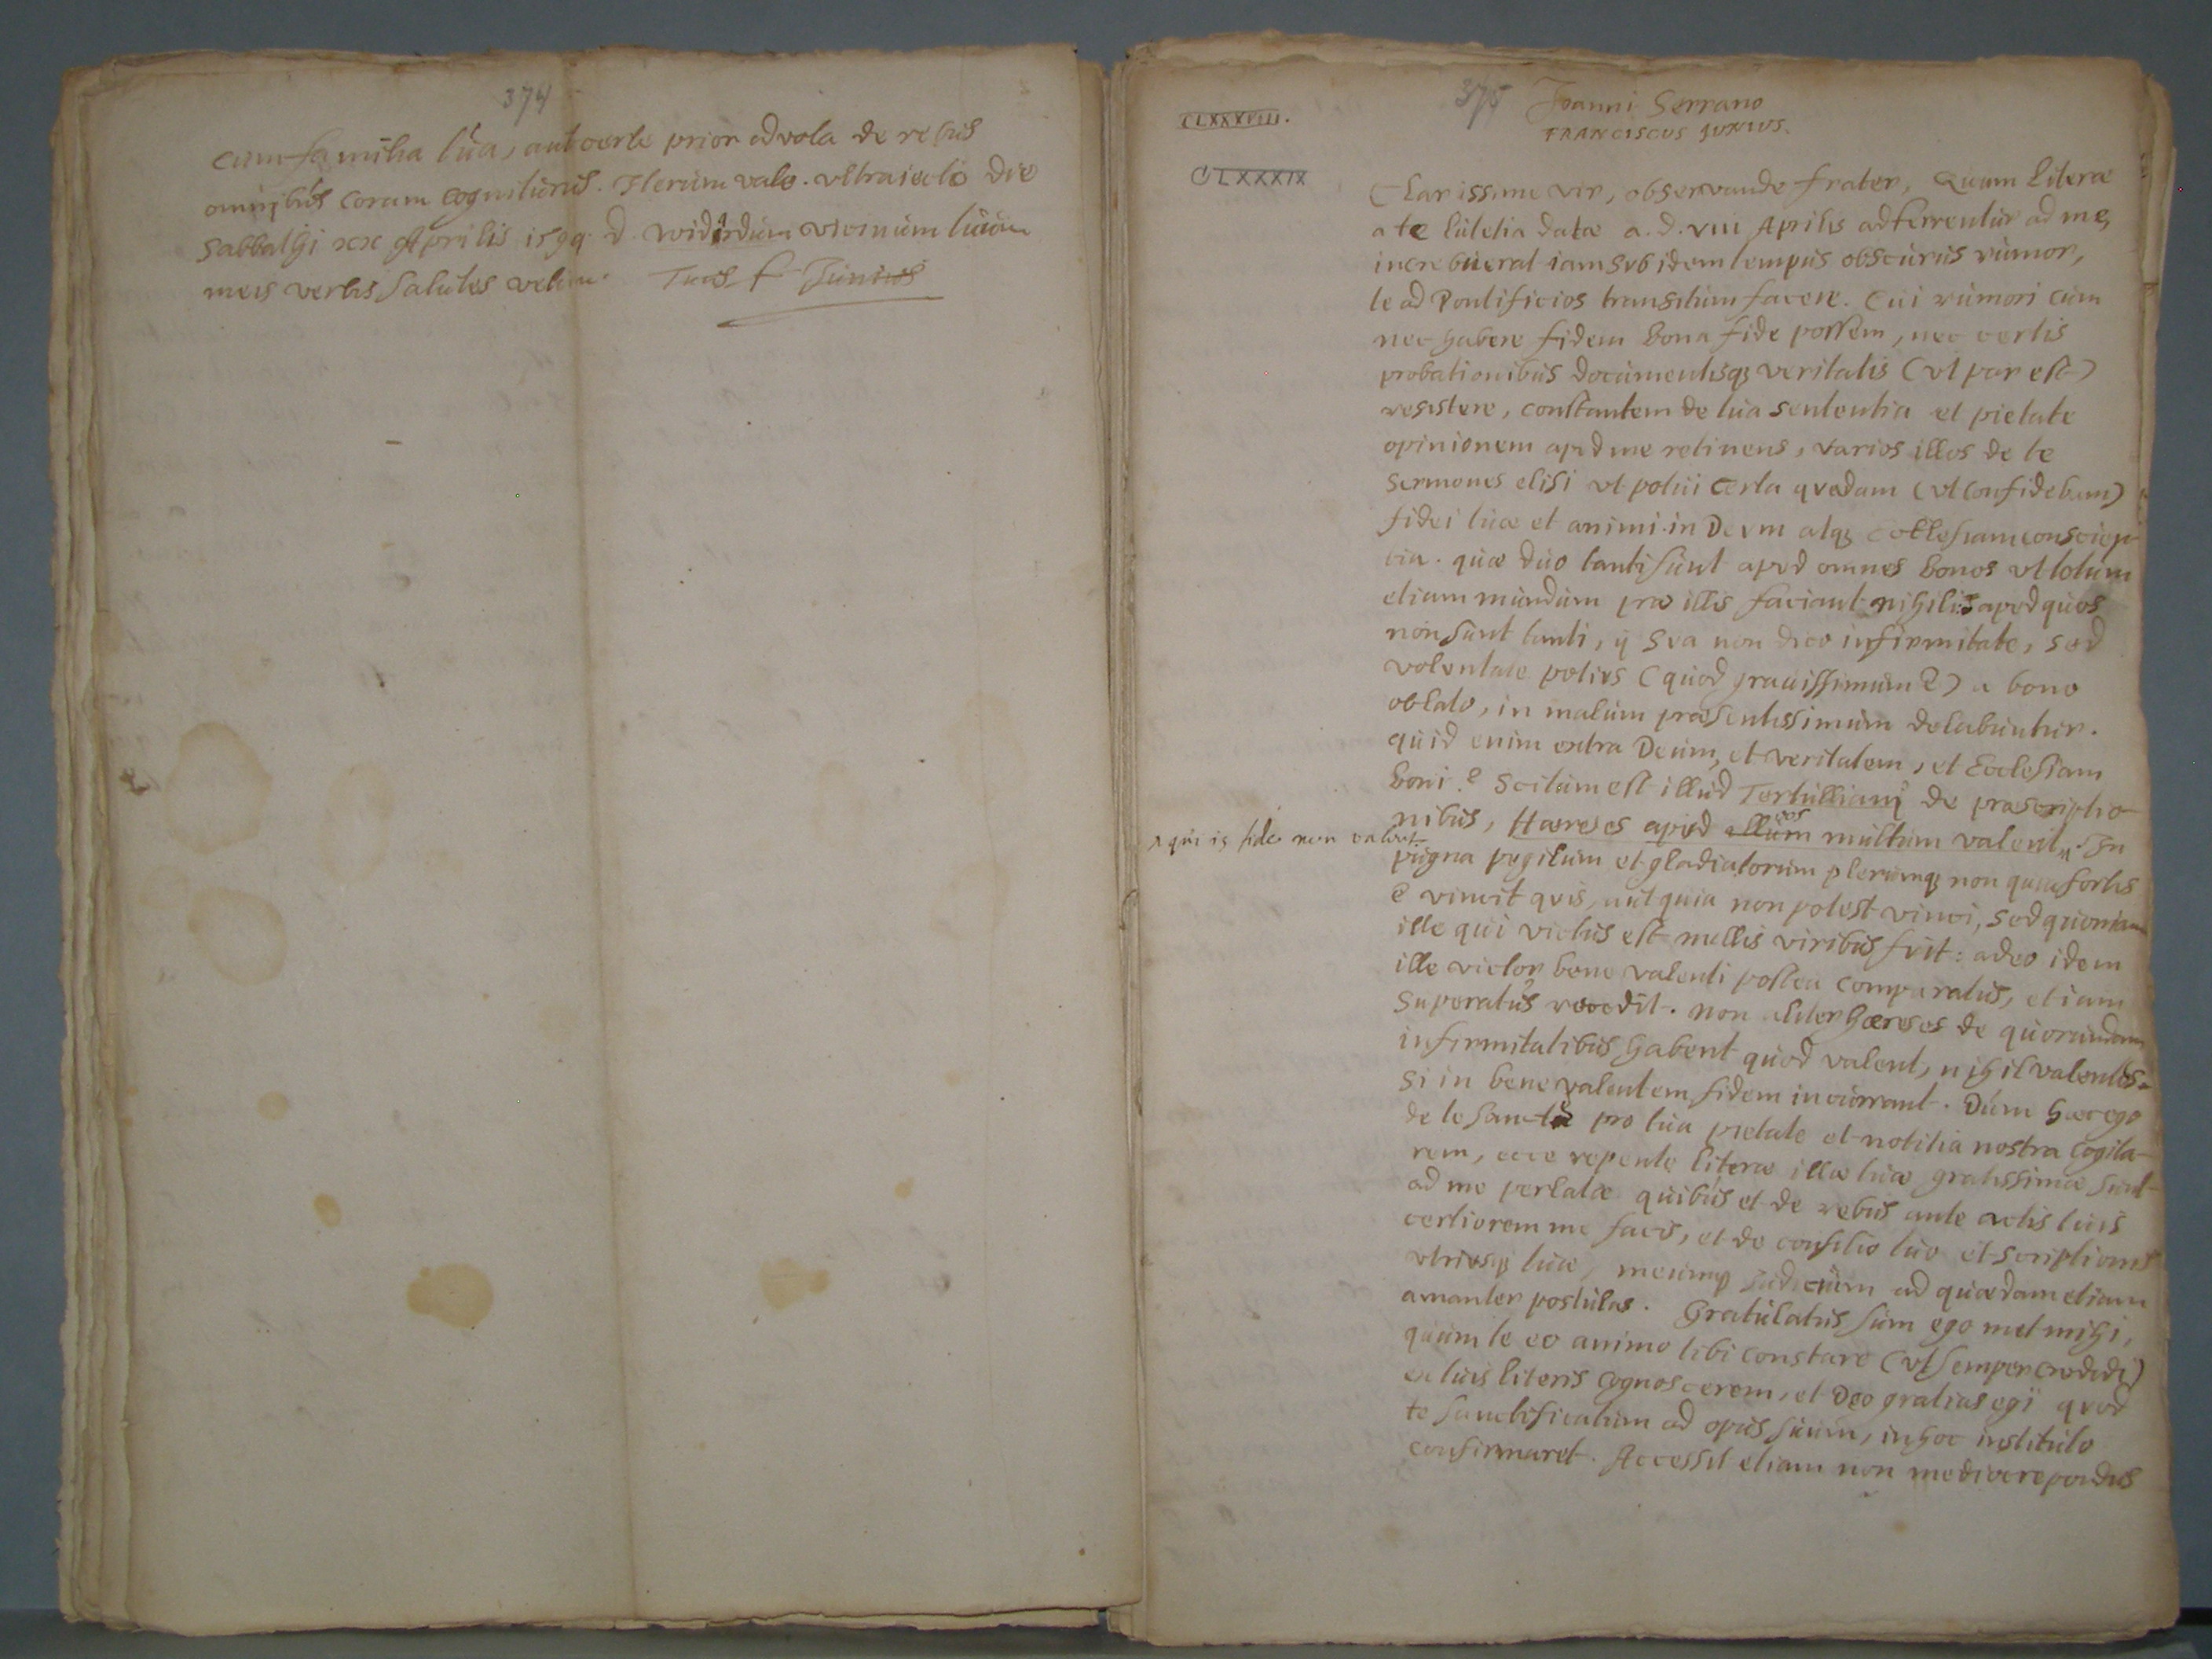 374
cum familia tua, aut certe prior advola de rebus
omnibus coram cogniturus. Iterum vale. Ultraiecto die
Sabbathi xx Aprilis 1599. D. Widirdum vicinum tuum
meis verbis salutes velim. Tuus F Junius
375
Joanni Serrano
FRANCISCUS JUNIUS.
CLXXXVIII.
CLXXXIX
Clarissime vir, observande frater, Quum literæ
a te Lutetia datæ a. d. VIII Aprilis adferrentur ad me,
increbuerat iam sub idem tempus obscurus rumor,
te ad Pontificios transitum facere. Cui rumori cum
nec habere fidem bona fide possem, nec certis
probationibus documentisq; veritatis (ut par est)
resistere, constantem de tua sententia et pietate
opinionem apud me retinens, varios illos de te
sermones elisi ut potui certa quadam (ut confidebam)
fidei tuæ et animi in Deum atq; Ecclesiam conscien
tia. quæ duo tanti sunt apud omnes bonos ut totum
etiam mundum præ illis faciant nihili: apud quos
non sunt tanti, ij sua non dico infirmitate, sed
voluntate potius (quod gravissimum ē) a bono
oblato, in malum præsentissimum delabuntur.
quid enim extra Deum, et veritatem, et Ecclesiam
boni? Scitum est illud Tertulliani de præscriptio
nibus, Hæreses apud illum eos multum valent. In
qui in fide non valent
pugna pugilum et gladiatorum plerumq; non quia fortis
ē vincit quis, aut quia non potest vinci, sed quoniam
ille qui victus est nullis viribus fuit: adeo idem
ille victor bene valenti postea comparatus, etiam
superatus recedit. non aliter hæreses de quorundam
infirmitatibus habent quod valent, nihil valentes
si in bene valentem fidem incurrant. Dum hæc ego
de te sancte pro tua pietate et notitia nostra cogita
rem, ecce repente literæ illæ tuæ gratissimæ sunt
ad me perlatæ quibus et de rebus ante actis tuis
certiorem me facis, et de consilio tuo et scriptionis
utriusq; tuæ, meumq; iudicium ad quædam etiam
amanter postulas. Gratulatus sum egomet mihi,
quum te eo animo tibi constare (ut semper credidi)
ex tuis literis cognoscerem, et Deo gratias egi quod
te sanctificatum ad opus suum, in hoc instituto
confirmaret. Accessit etiam non mediocre pondus